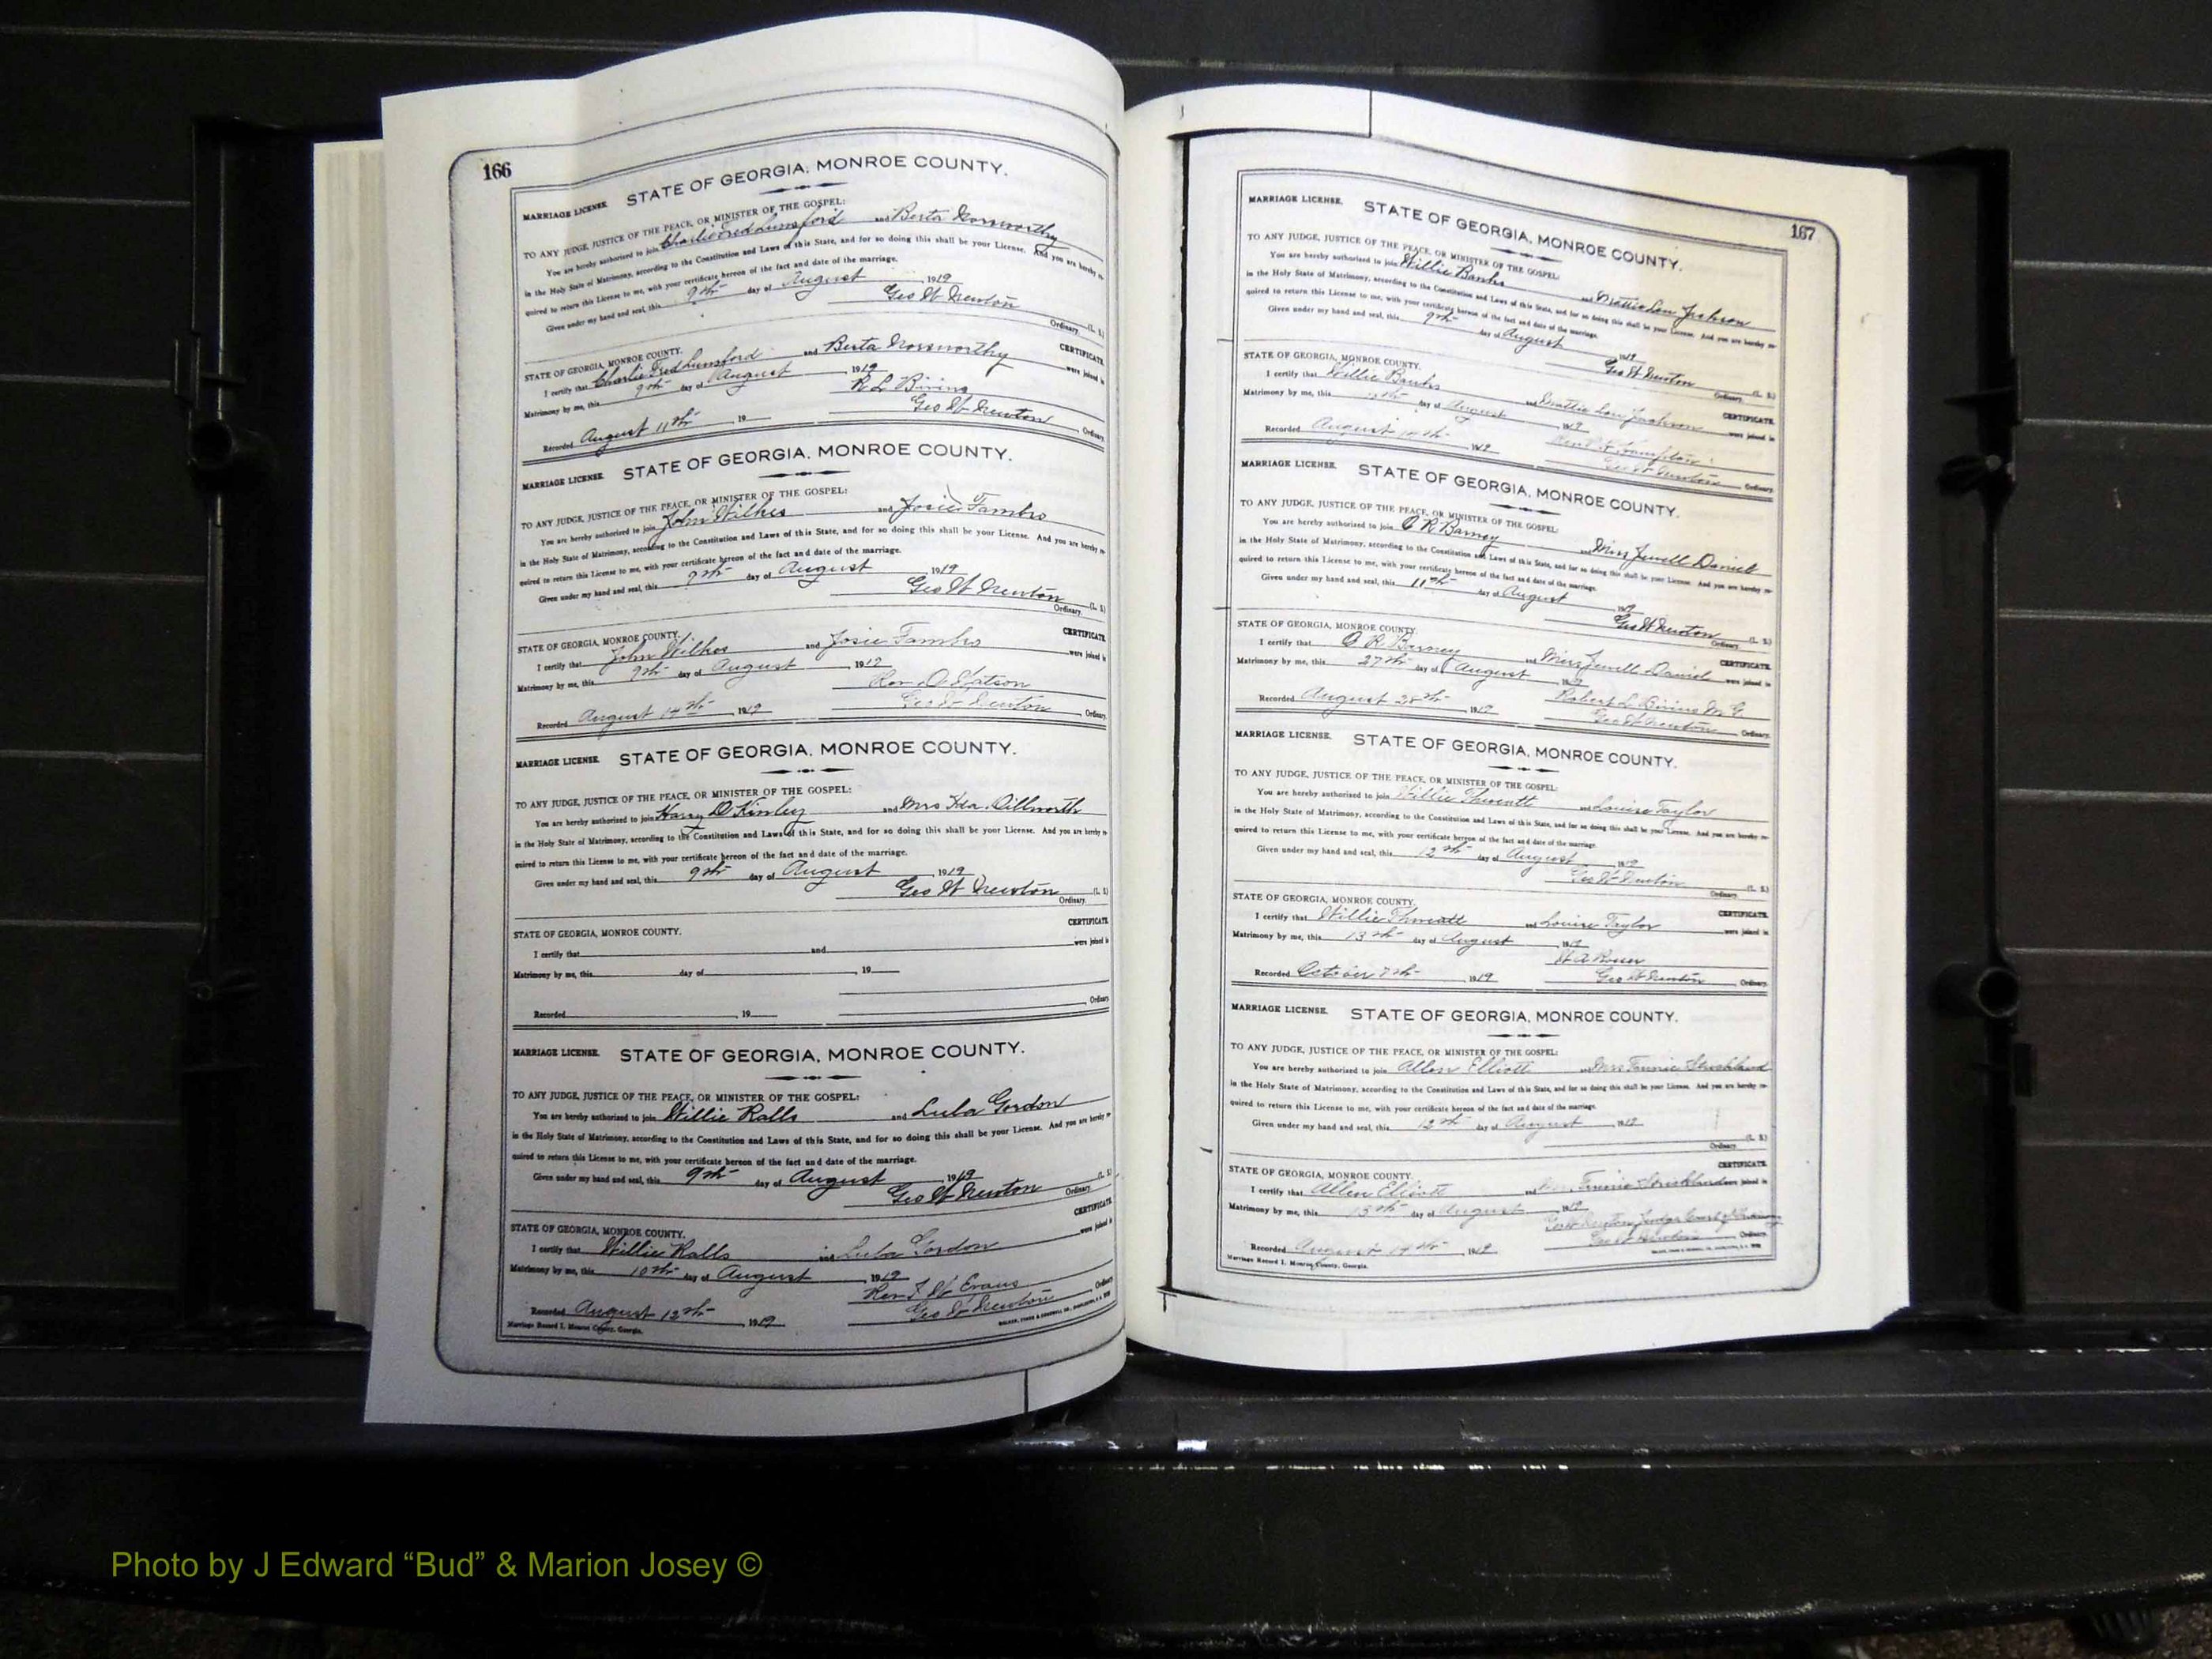 166
MARRIAGE LICENSE. STATE OF GEORGIA, MONROE COUNTY.
TO ANY JUDGE, JUSTICE OF THE PEACE, OR MINISTER OF THE GOSPEL:
You are hereby authorized to join Charlie Fred Lunsford and Berta Norsworthy
in the Holy State of Matrimony, according to the Constitution and Laws of this State, and for so doing this shall be your License. And you are hereby re-
quired to return this License to me, with your certificate hereon of the fact and date of the marriage.
Given under my hand and seal, this 9th day of August, 1919
Geo W Newton (L. S.)
Ordinary.
STATE OF GEORGIA, MONROE COUNTY. CERTIFICATE.
I certify that Charlie Fred Lunsford and Berta Norsworthy were joined in
Matrimony by me, this 9th day of August, 1919
R L Bivins
Recorded August 11th, 19 Geo W Newton, Ordinary.
MARRIAGE LICENSE. STATE OF GEORGIA, MONROE COUNTY.
TO ANY JUDGE, JUSTICE OF THE PEACE, OR MINISTER OF THE GOSPEL:
You are hereby authorized to join John Wilkes and Josie Fambro
in the Holy State of Matrimony, according to the Constitution and Laws of this State, and for so doing this shall be your License. And you are hereby re-
quired to return this License to me, with your certificate hereon of the fact and date of the marriage.
Given under my hand and seal, this 9th day of August, 1919
Geo W Newton (L. S.)
Ordinary.
STATE OF GEORGIA, MONROE COUNTY. CERTIFICATE.
I certify that John Wilkes and Josie Fambro were joined in
Matrimony by me, this 9th day of August, 1919
Rev D
Recorded August 14th, 1919 Geo W Newton, Ordinary.
MARRIAGE LICENSE. STATE OF GEORGIA, MONROE COUNTY.
TO ANY JUDGE, JUSTICE OF THE PEACE, OR MINISTER OF THE GOSPEL:
You are hereby authorized to join Harry D Kinley and Mrs Ida Dillworth
in the Holy State of Matrimony, according to the Constitution and Laws of this State, and for so doing this shall be your License. And you are hereby re-
quired to return this License to me, with your certificate hereon of the fact and date of the marriage.
Given under my hand and seal, this 9th day of August, 1919
Geo W Newton (L. S.)
Ordinary.
CERTIFICATE.
STATE OF GEORGIA, MONROE COUNTY.
I certify that and were joined in
Matrimony by me, this day of, 19
Ordinary.
Recorded, 19
MARRIAGE LICENSE. STATE OF GEORGIA, MONROE COUNTY.
TO ANY JUDGE, JUSTICE OF THE PEACE, OR MINISTER OF THE GOSPEL:
You are hereby authorized to join Willie Ralls and Lula Gordon
in the Holy State of Matrimony, according to the Constitution and Laws of this State, and for so doing this shall be your License. And you are hereby re-
quired to return this License to me, with your certificate hereon of the fact and date of the marriage.
Given under my hand and seal, this 9th day of August, 1919 (L. S.)
Geo W Newton Ordinary.
STATE OF GEORGIA, MONROE COUNTY. CERTIFICATE.
I certify that Willie Ralls and Lula Gordon were joined in
Matrimony by me, this 10th day of August, 1919
Rev W Evans
Recorded August 12th, 1919 Geo W Newton Ordinary.
Marriage Record I. Monroe County, Georgia.
167
MARRIAGE LICENSE. STATE OF GEORGIA, MONROE COUNTY.
TO ANY JUDGE, JUSTICE OF THE PEACE, OR MINISTER OF THE GOSPEL:
You are hereby authorized to join Willie Banks and Mattie Lou Jackson
in the Holy State of Matrimony, according to the Constitution and Laws of this State, and for so doing this shall be your License. And you are hereby re-
quired to return this License to me, with your certificate hereon of the fact and date of the marriage.
Given under my hand and seal, this 9th day of August 1919
Geo W Newton (L. S.)
Ordinary.
STATE OF GEORGIA, MONROE COUNTY. CERTIFICATE.
I certify that Willie Banks and Mattie Lou Jackson were joined in
Matrimony by me, this day of August 1919
Recorded August 1919 Geo W Newton Ordinary.
MARRIAGE LICENSE. STATE OF GEORGIA, MONROE COUNTY.
TO ANY JUDGE, JUSTICE OF THE PEACE, OR MINISTER OF THE GOSPEL:
You are hereby authorized to join O R Barney and Miss Jewell Daniel
in the Holy State of Matrimony, according to the Constitution and Laws of this State, and for so doing this shall be your License. And you are hereby re-
quired to return this License to me, with your certificate hereon of the fact and date of the marriage.
Given under my hand and seal, this 11th day of August 1919
Geo W Newton (L. S.)
Ordinary.
STATE OF GEORGIA, MONROE COUNTY. CERTIFICATE.
I certify that O R Barney and Miss Jewell Daniel were joined in
Matrimony by me, this 27th day of August 1919
Robert L Bivins M. G.
Recorded August 28th, 1919 Geo W Newton Ordinary.
MARRIAGE LICENSE. STATE OF GEORGIA, MONROE COUNTY.
TO ANY JUDGE, JUSTICE OF THE PEACE, OR MINISTER OF THE GOSPEL:
You are hereby authorized to join Willie Thweatt and Louise Taylor
in the Holy State of Matrimony, according to the Constitution and Laws of this State, and for so doing this shall be your License. And you are hereby re-
quired to return this License to me, with your certificate hereon of the fact and date of the marriage.
Given under my hand and seal, this 12th day of August 1919
Geo W Newton (L. S.)
Ordinary.
STATE OF GEORGIA, MONROE COUNTY. CERTIFICATE.
I certify that Willie Thweatt and Louise Taylor were joined in
Matrimony by me, this 13th day of August, 1919
Recorded October 7th 1919 Geo W Newton Ordinary.
MARRIAGE LICENSE. STATE OF GEORGIA, MONROE COUNTY.
TO ANY JUDGE, JUSTICE OF THE PEACE, OR MINISTER OF THE GOSPEL:
You are hereby authorized to join Allen Elliott and Mrs Fannie Strickland
in the Holy State of Matrimony, according to the Constitution and Laws of this State, and for so doing this shall be your License. And you are hereby re-
quired to return this License to me, with your certificate hereon of the fact and date of the marriage.
Given under my hand and seal, this 12th day of August, 1919
(L. S.)
Ordinary.
STATE OF GEORGIA, MONROE COUNTY. CERTIFICATE.
I certify that Allen Elliott and Mrs Fannie Strickland were joined in
Matrimony by me, this 13th day of August, 1919
Geo W Newton Judge Court of Ordinary
Recorded August 14th 1919 Geo W Newton Ordinary.
Marriage Record I. Monroe County, Georgia.
Photo by J Edward “Bud” & Marion Josey ©